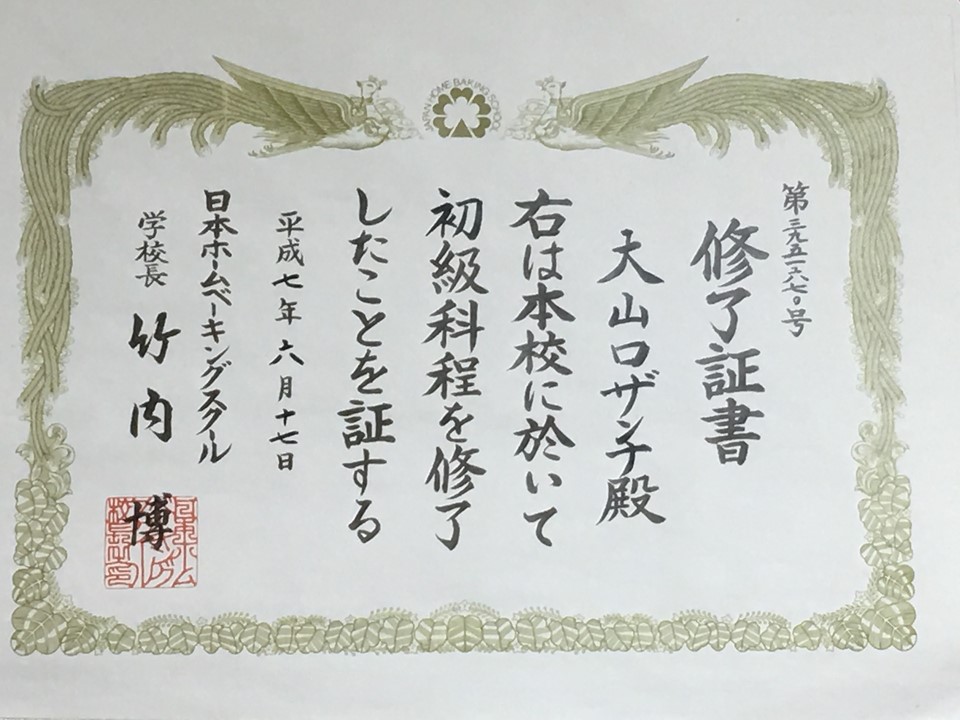 JAPAN HOME BAKING SCHOOL
第三九五一六七〇号
修了証書
大山ロザンチ殿
右は本校に於いて
初級科程を修了
したことを証する
平成七年六月十七日
日本ホームベーキングスクール
学校長 竹内 博